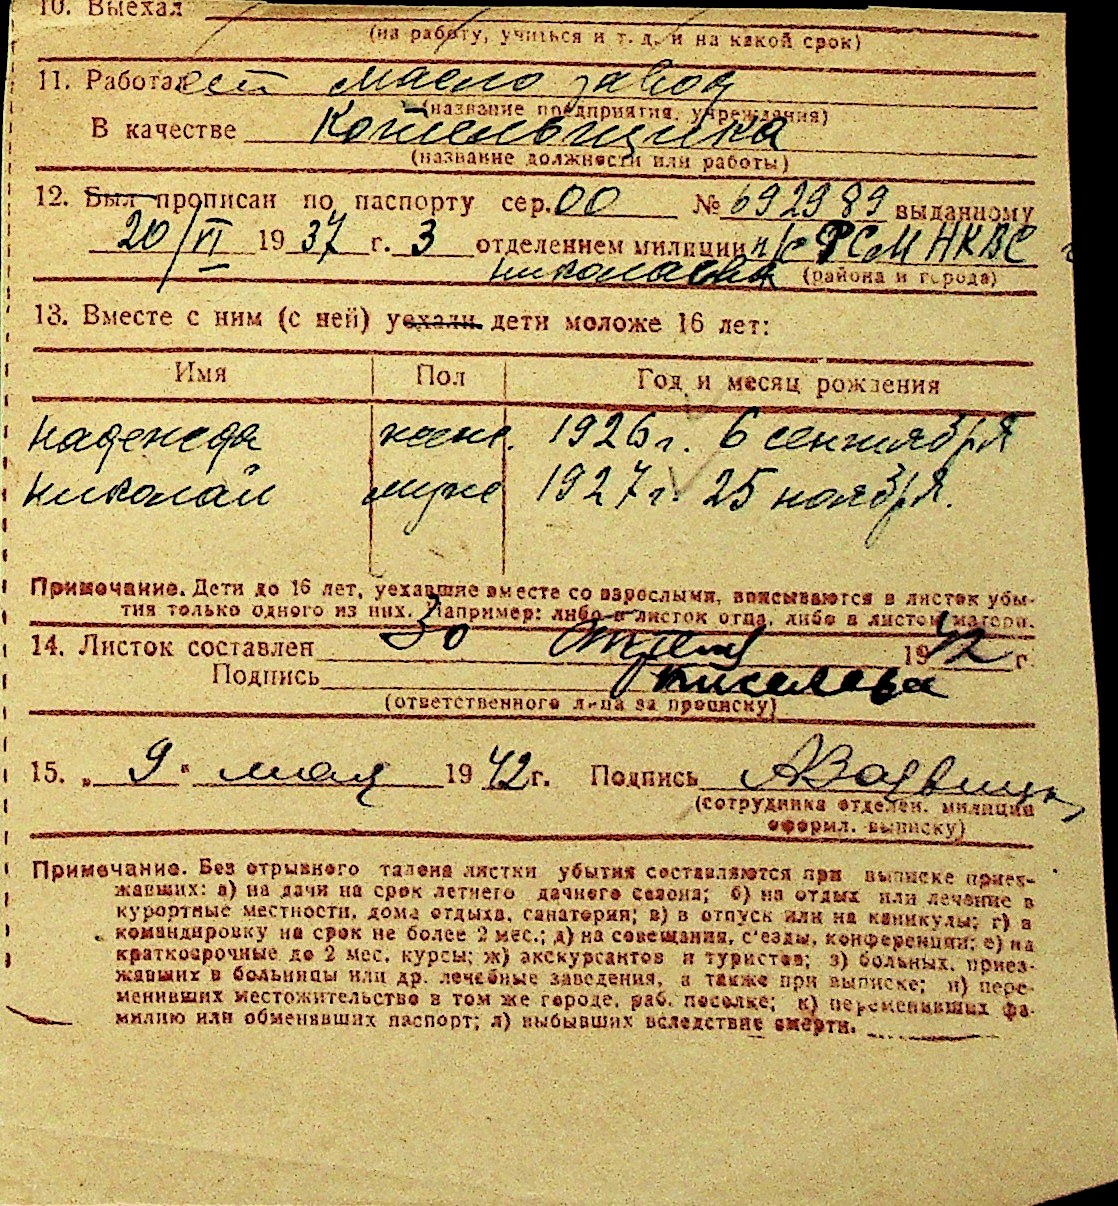 10. Выехал
(на работу, учиться и т. д. и на какой срок)
11. Работает масло завод
(название предприятия, учреждения)
В качестве Котельщика
(название должности или работы)
12. Был прописан по паспорту сер. 00 № 692989 выданному
20/VI 1937 г. 3 отделением милиции РСМ НКВС
(района и города)
13. Вместе с ним (с ней) уехали дети моложе 16 лет:
Имя Пол Год и месяц рождения
Надежда жен. 1926 г. 6 сентября
Николай муж 1927 г. 25 ноября.
Примечание. Дети до 16 лет, уехавшие вместе со взрослыми, вписываются в листок убы-
тия только одного из них. Например: либо в листок отца, либо в листок матери.
14. Листок составлен 30 Апреля 1942 г.
Подпись Киселева
(ответственного лица за прописку)
15. „ 9 " мая 1942 г. Подпись
(сотрудника отделен. милиции
оформл. выписку)
Примечание. Без отрывного талона листки убытия составляются при выписке приез-
жавших: а) на дачи на срок летнего дачного сезона; б) на отдых или лечение в
курортные местности, дома отдыха, санатория; в) в отпуск или на каникулы; г) в
командировку на срок не более 2 мес.; д) на совещания, с'езды, конференции; е) на
краткосрочные до 2 мес. курсы; ж) экскурсантов и туристов; з) больных, приез-
жавших в больницы или др. лечебные заведения, а также при выписке; и) пере-
менивших местожительство в том же городе, раб. поселке; к) переменивших фа-
милию или обменявших паспорт; л) выбывших вследствие смерти.